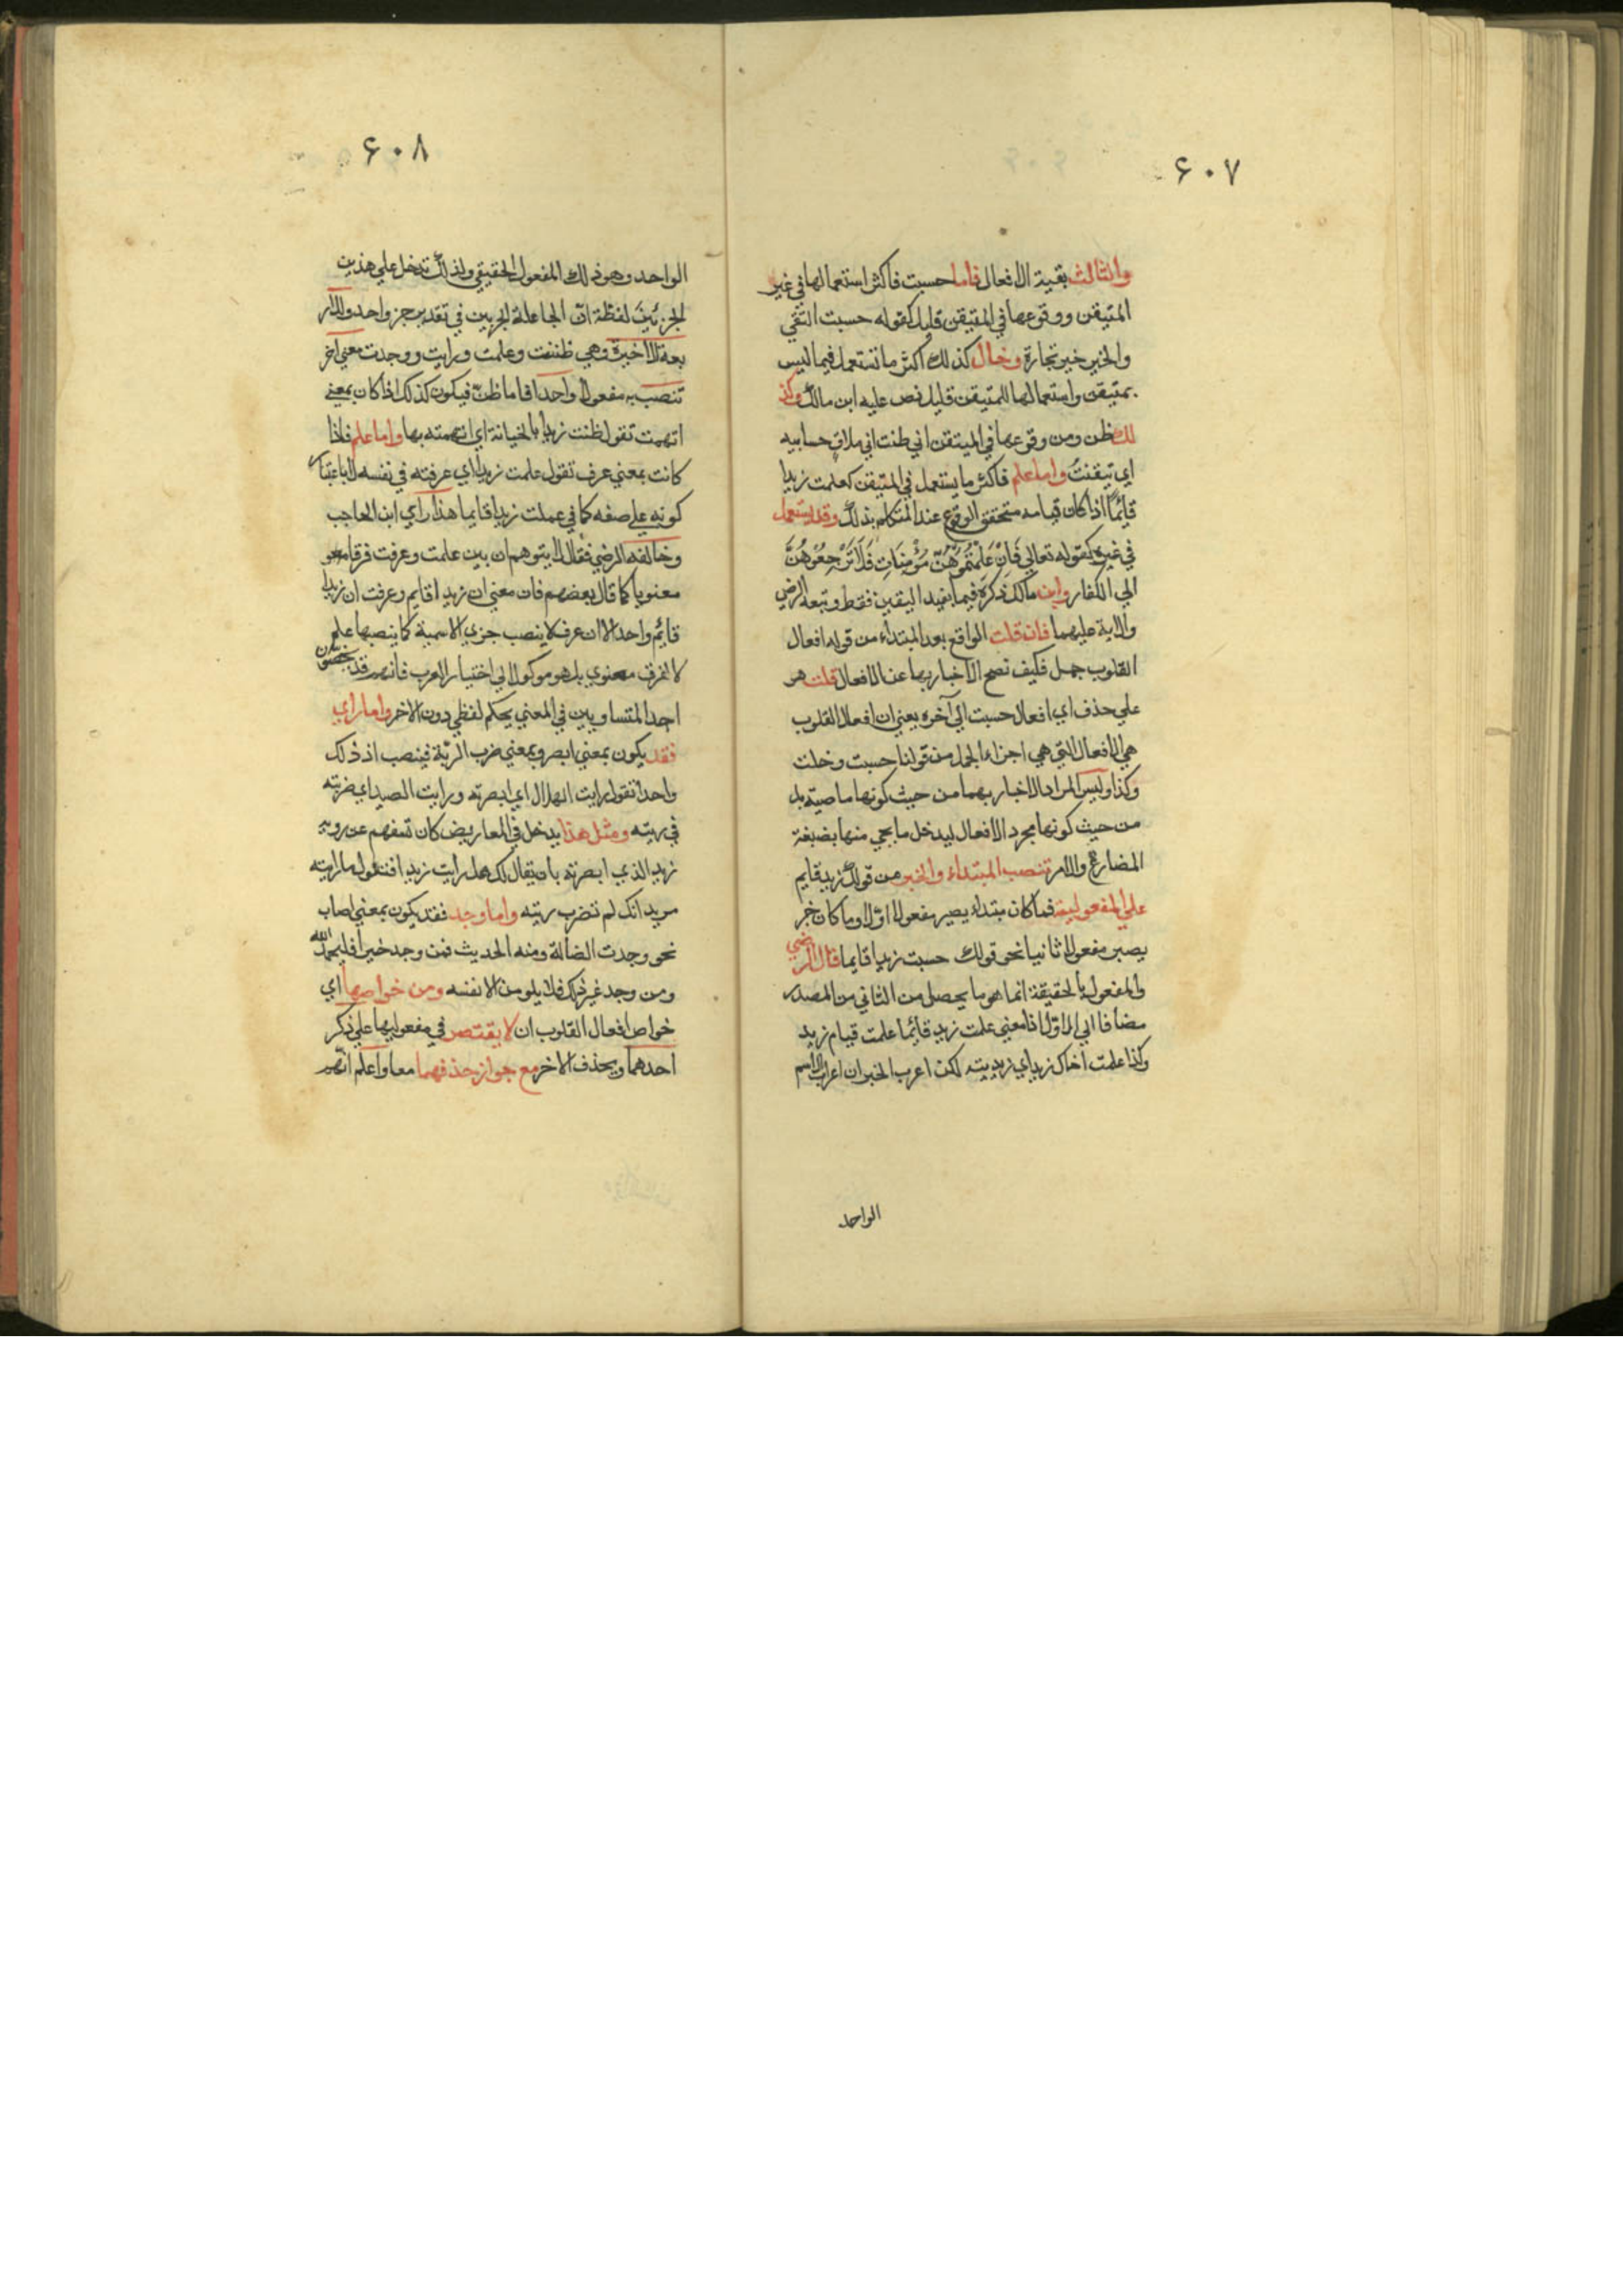 ٦٠٧
والثالث بقية الافعال فاما حسبت فاكثر استعمالها في غير
المتيقن ووقوعها في المتيقن قليل كقوله حسبت التقي
والخير خير تجارة وخال كذلك اكثر ما تستعمل فيما ليس
بمتيقن واستعمالها للمتيقن قليل نص عليه ابن مالك وكذ
لك ظن ومن وقوعها في الميتقن اني ظنت اني ملاق حسابيه
اي تيقنت واما علم فاكثر ما يستعمل في المتيقن كعلمت زيدا
قائما اذا كان قيامه متحقق الوقوع عند المتكلم بذلك وقد يستعمل
في غيره كقوله تعالي فَاِنْ عَلِمْتُمُوهُنَّ مُؤْمِنَاتٍ فَلَا تَرْجِعُوْهُنَّ
الي الكفار وابن مالك ذكره فيما يفيد اليقين فقط وتبعه الرضي
والاية عليهما فان قلت الواقع بعد المبتداء من قوله افعال
القلوب جمل فكيف تصح الاخبار بها عن الافعال قلت هو
علي حذف اي افعال حسبت الي آخره يعني ان افعال القلوب
هي الافعال التي هي اجزاء الجمل من قولنا حسبت وخلت
وكذا وليس المراد الاخبار بهما من حيث كونها ماضية بل
من حيث كونها مجرد الافعال ليدخل ما يجي منها بصيغة
المضارع والامر تنصب المبتداء والخبر من قولك زيد قايم
علي المفعولية فما كان مبتداء يصير مفعولا اولا وما كان خبر
يصير مفعولا ثانيا نحو قولك حسبت زيدا قايما قال الرضي
والمفعول بالحقيقة انما هو ما يحصل من الثاني من المصدر
مضافا الي الاول اذ معني علمت زيد قائما علمت قيام زيد
وكذا علمت اخاك زيدا اي زيديته لكن اعرب الخبران اعراب الاسم
الواحد
٦٠٨
الواحد وهو ذلك المفعول الحقيقي ولذلك تدخل علي هذين
الجزئين لفظة انّ الجاعلة الجزيين في تقدير جز واحد
بعة الاخيرة وهي ظننت وعلمت ورايت ووجدت معني اخر
تنصب به مفعولا واحدا فاما ظن فيكون كذلك اذا كان بمعني
اتهمت تقول ظننت زيدا بالخيانة اي اتهمته بها واما علم فاذا
كانت بمعني عرف تقول علمت زيدا اي عرفته في نفسه لا باعتبار
كونه علي صفه كما في عملت زيدا قايما هذا راي ابن الحاجب
وخالفه الرضي فقال لا يتوهم ان بين علمت وعرفت فرقا
معنويا كما قال بعضهم فان معني ان زيدا قايم وعرفت ان زيدا
قائم واحد الا ان عرف لا ينصب جزي الاسمية كما ينصبها علم
لا لفرق معنوي بل هو موكول الي اختيار العرب فانهم قد يخصون
احد المتساويين في المعني بحكم لفظي دون الاخر واما راي
فقد يكون بمعني ابصر وبمعني ضرب الرية فينصب اذ ذلك
واحدا تقول رايت الهلال اي ابصرته ورايت الصيد اي ضربته
في ريته ومثل هذا يدخل في المعاريض كان تستفهم عن روية
زيد الذي ابصرته بان يقال لك هل رايت زيدا فتقول ما رايته
مريد انك لم تضرب ريته واما وجد فقد يكون بمعني اصاب
نحو وجدت الضالة ومنه الحديث فمن وجد خيرا فليحمد الله
ومن وجد غير ذلك فلا يلومن الا نفسه ومن خواصها اي
خواص افعال القلوب ان لا يقتصر في مفعوليها علي ذكر
احدهما ويحذف الاخر مع جواز حذفهما معا واعلم انهم